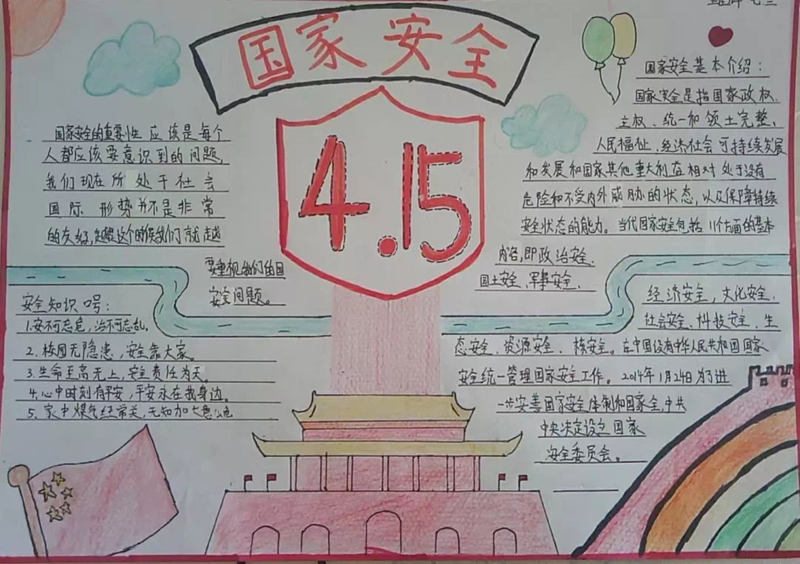 国家安全
4.15
国家安全的重要性 应该是每个
人都应该要意识到的问题,
我们现在所处于社会
国际 形势并不是非常
的友好,越是这个时候我们就越
要重视我们的国
安全问题。
安全知识口号:
1.安不可忘危,治不可忘乱,
2.校园无隐患,安全靠大家。
3.生命至高无上,安全责任为天。
4.心中时刻有平安,平安永在我身边。
5.家中煤气经常关,
国家安全基本介绍:
国家安全是指国家政权.
主权、统一和领土完整、
人民福祉、经济社会可持续发展
和发展和国家其他重大利益相对处于没有
危险和不受内外威胁的状态,以及保障持续
安全状态的能力。当代国家安全包括11个方面的基本
内容,即政治安全.
国土安全、军事安全.
经济安全,文化安全.
社会安全、科技安全,生
态安全、资源安全、核安全。在中国设有中华人民共和国国家
安全统一管理国家安全工作。2014年1月24日为了进
一步安善国百安全体制和国家全,中共
中央决定设立国家
安全委员会。